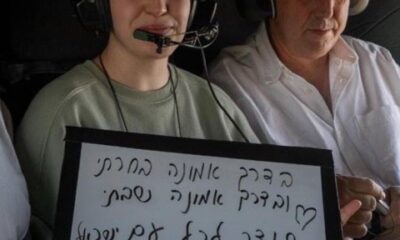 בדרך אמונה בחרתי
ובדרך אמונה נשבתי
תודה לכל עם ישראל